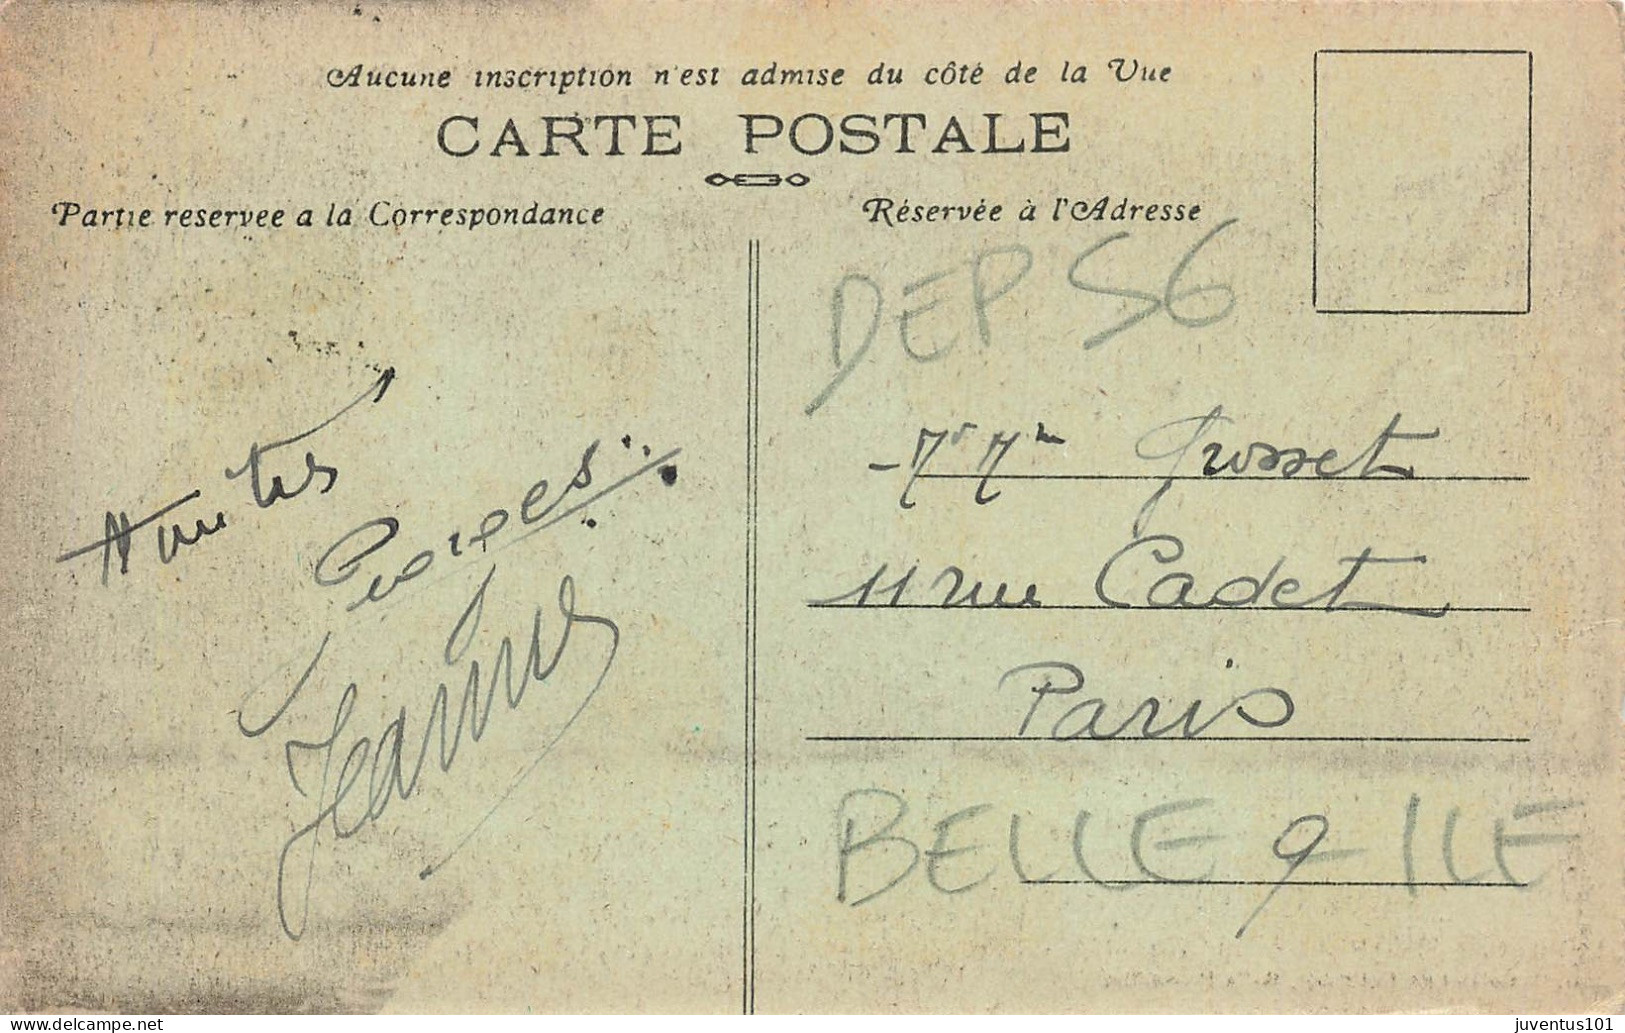 Aucune inscription n'est admise du côté de la Vue
CARTE POSTALE
Partie reservee a la Correspondance
Réservée à l'Adresse
DEP 56
Amitiés
Jeanne
Grosset
11 rue Cadet
Paris
9
BELLE-ILE
delcampe.net
juventus101